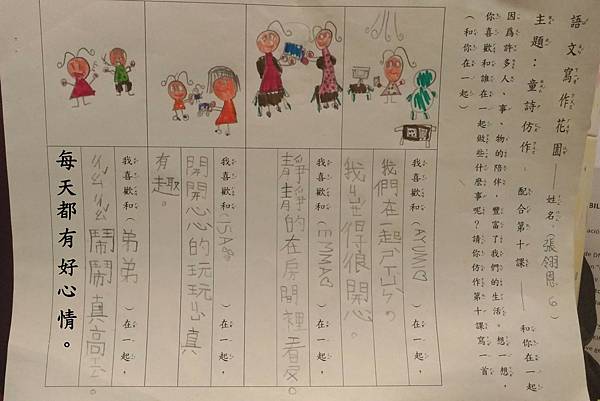 語文寫作花園——姓名:(張翎恩6)
主題:童詩仿作。配合第十課——和你在一起
因為許多人、事、物的陪伴,豐富了我們的生活。想一想,
你喜歡和誰在一起做些什麼事呢?請你仿作第十課寫一首
(和你在一起)
我喜歡和(AYUMI♡)在一起,
我們在一起
我 得很開心。
我喜歡和(EMMA♡)在一起,
靜靜的在房間裡看 。
我喜歡和(ISA)在一起,
開開心心的玩玩 真
有趣。
我喜歡和(弟弟)在一起,
鬧鬧真高 。
每天都有好心情。